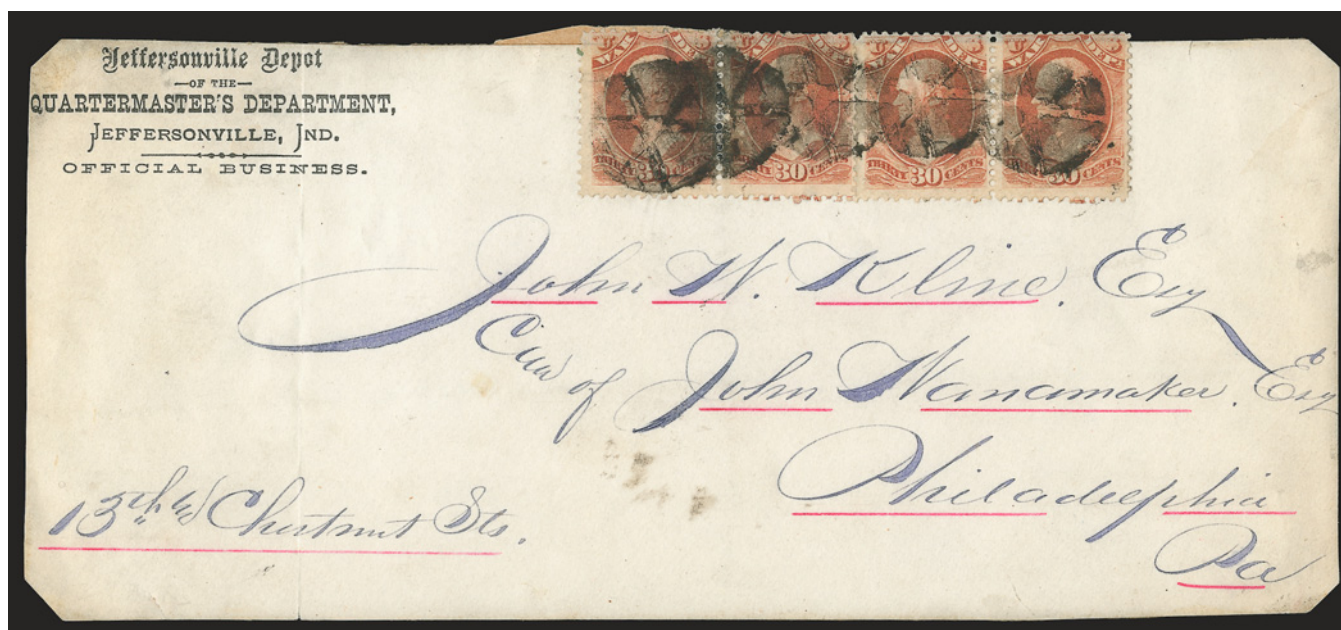 Jeffersonville Depot
—OF THE—
QUARTERMASTER'S DEPARTMENT,
JEFFERSONVILLE, IND.
OFFICIAL BUSINESS.
U S WAR DEPT.
U S WAR DEPT.
U S WAR DEPT.
U S WAR DEPT.
THIRTY 30 CENTS
THIRTY 30 CENTS
THIRTY 30 CENTS
30 CENTS
John W. Kline, Esq
Care of John Wanamaker, Esq
Philadelphia
Pa
13th & Chestnut Sts.